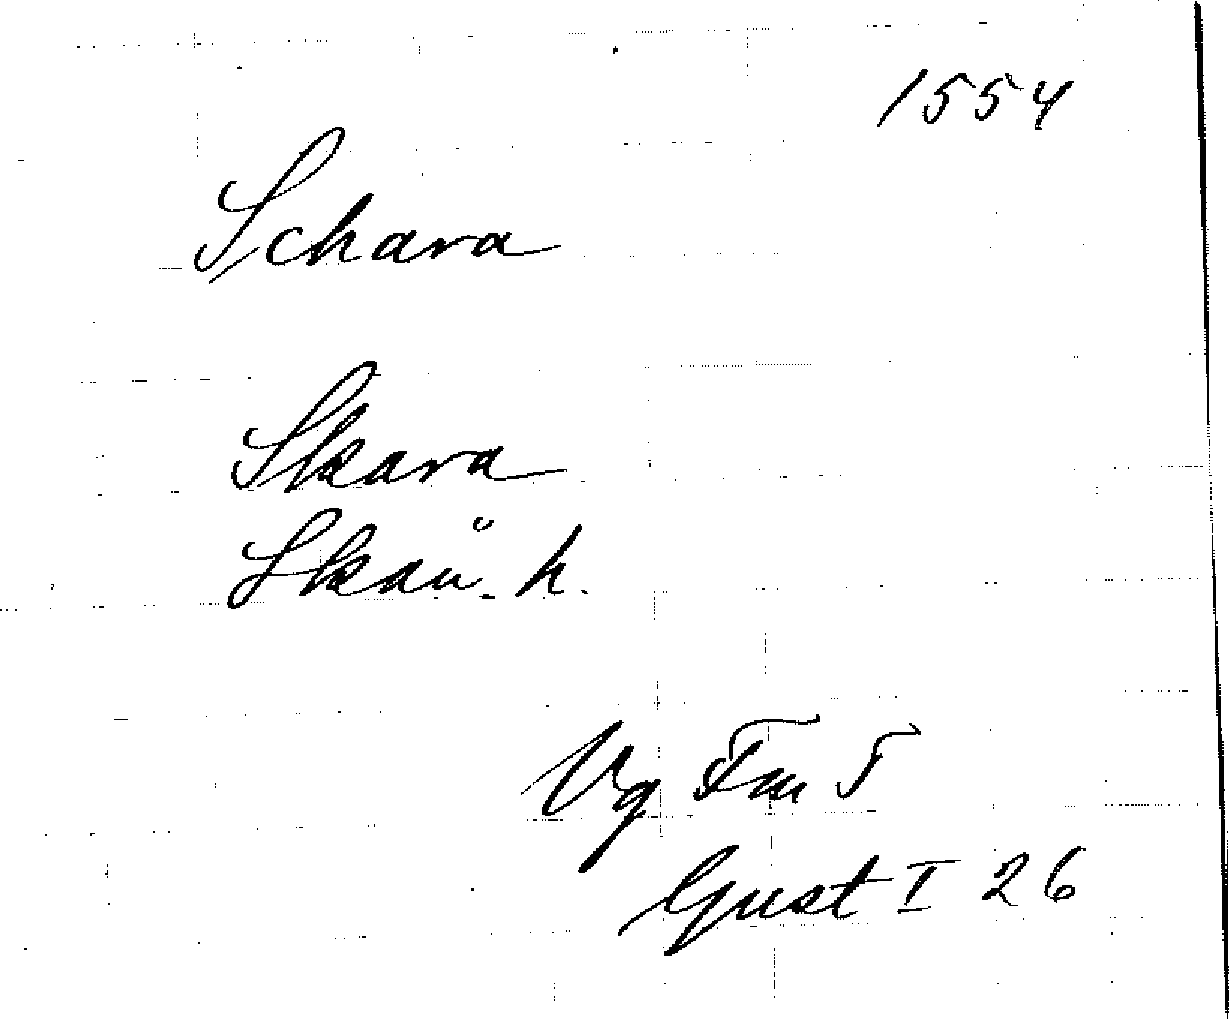 1554
Schara
Skara
Skån. h.
Vg Fm 5
Gust I 26